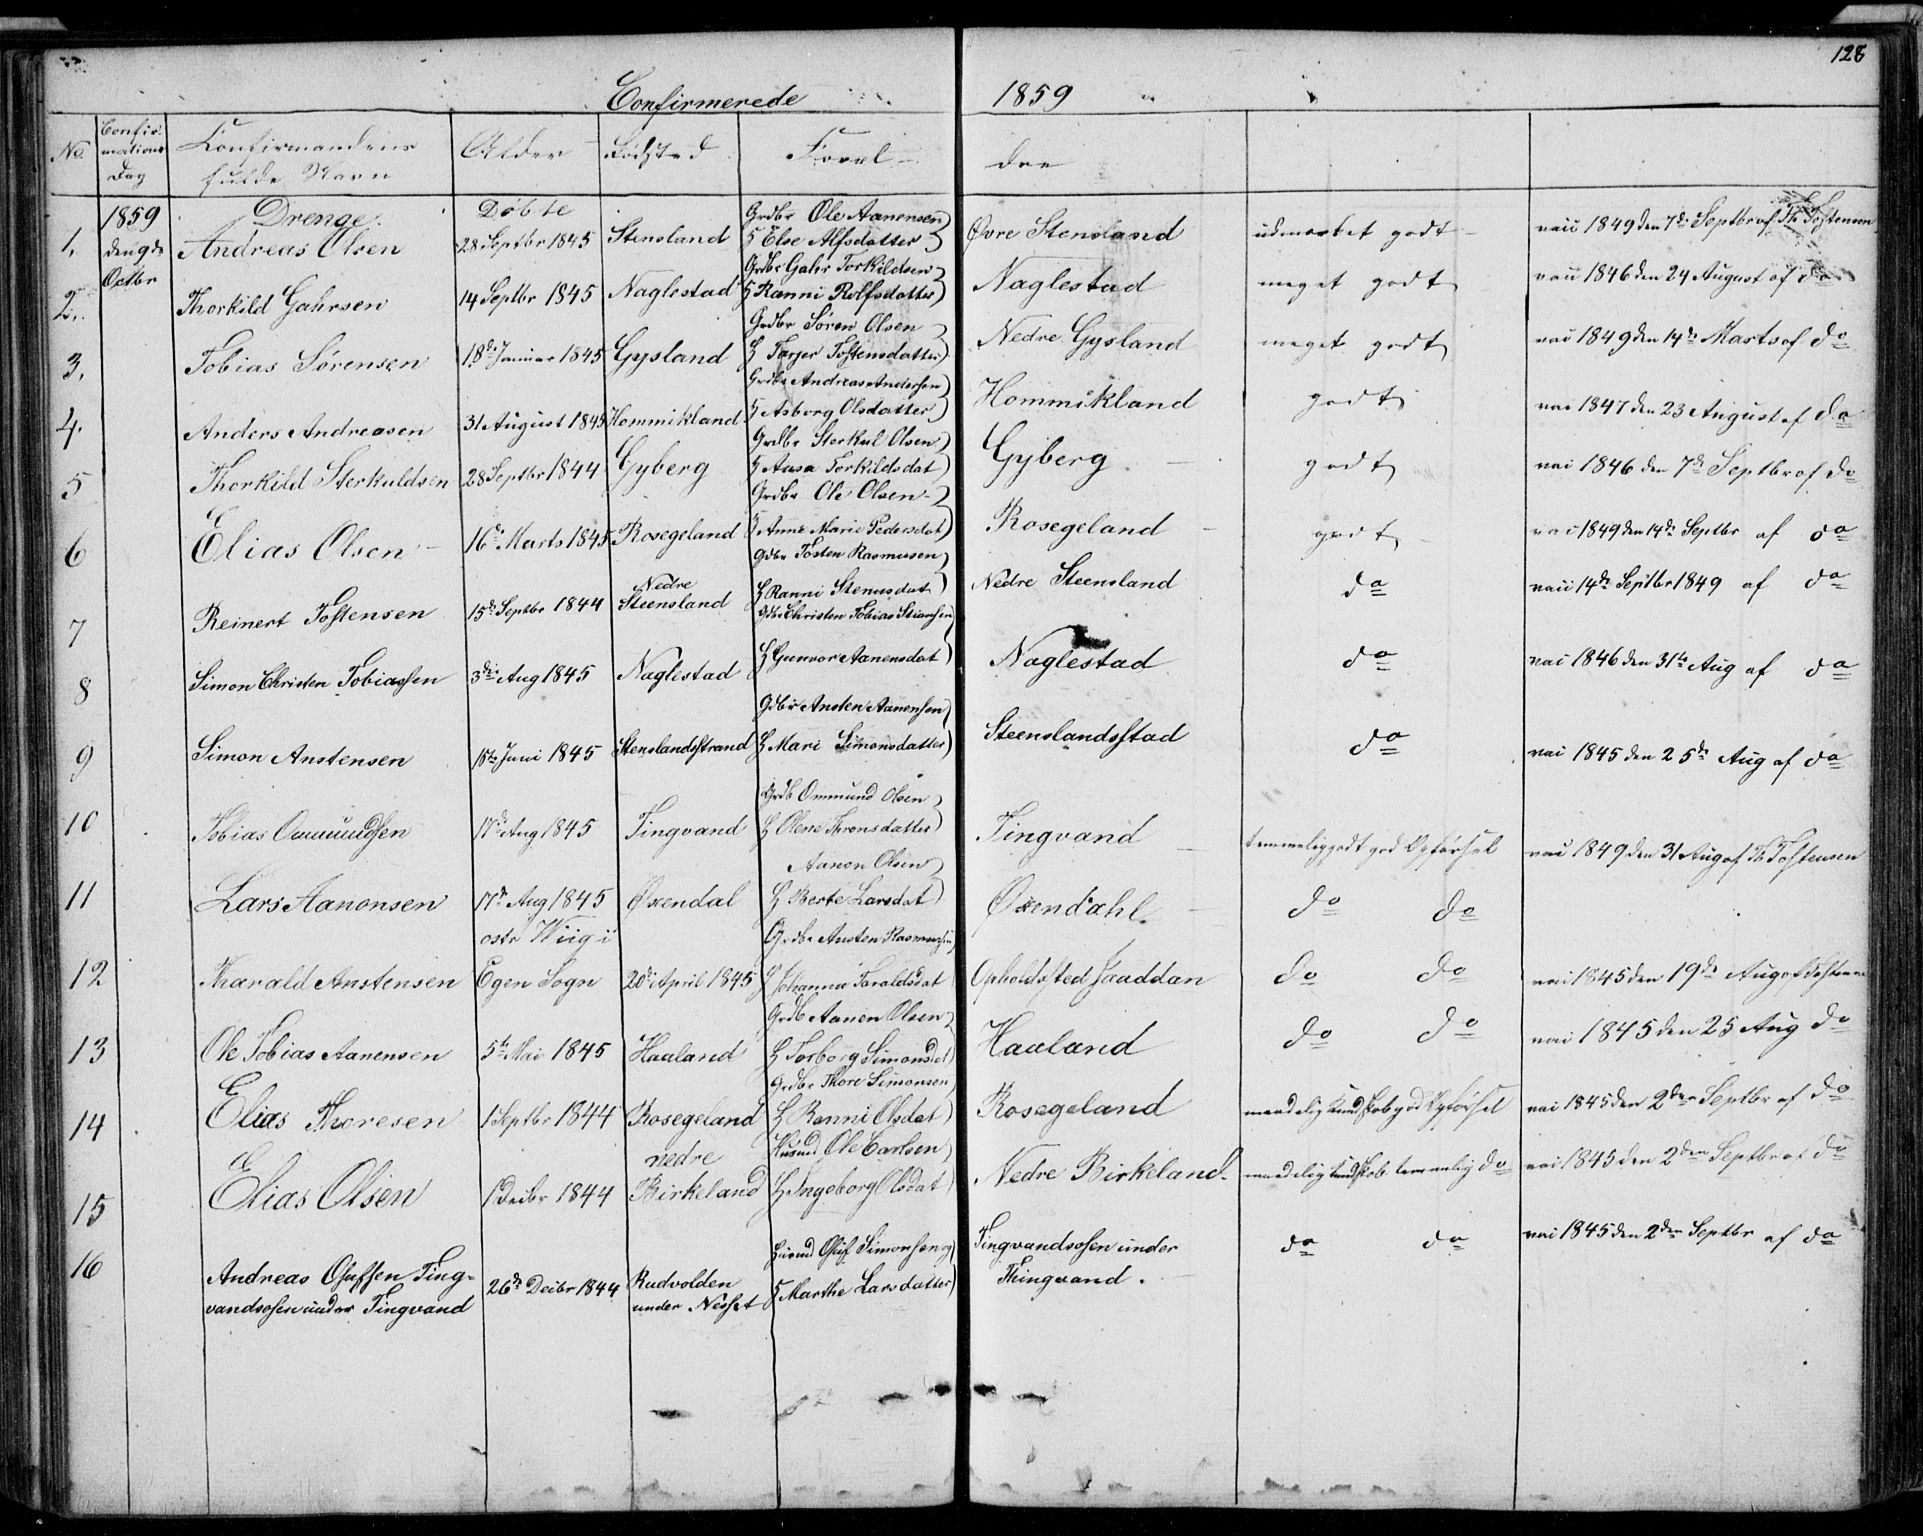 128
Confirmerede 1859
No. Confirmations Dag Confirmandens fulde Navn Alder Fødested Foræl- dre
1859 Drenge. Döbte
1. den 9de Octbr Andreas Olsen 28 Septbr 1845 Stensland Grdbr Ole Aanensen H Else Alfsdatter Øvre Stensland udmærket godt vaci 1849 den 7de Septbr af Th Tostensen
2. Thorkild Gahrsen 14 Septbr 1845 Naglestad Grdbr Gahr Torkildsen H Ranni Rolfsdatter Naglestad meget godt vaci 1846 den 24 August af do
3. Tobias Sörensen 18de Januar 1845 Gysland Grdbr Sören Olsen H Tarjer Tostensdatter Nedre Gysland meget godt vaci 1849 den 14de Marts af do
4. Anders Andreasen 31 August 1845 Hommikland Grdbr Andreas Andersen H Asborg Olsdatter Hommikland godt vaci 1847 den 23 August af do
5 Thorkild Sterkuldsen 28 Septbr 1844 Gyberg Grdbr Sterkul Olsen H Aasa Torkildsdat Gyberg godt vaci 1846 den 7de Septbr af do
6 Elias Olsen 16de Marts 1845 Rosegeland Grdbr Ole Olsen H Anne Marie Pedersdat Rosegeland godt vaci 1849 den 14de Septbr af do
7 Reinert Tostensen 15de Septbr 1844 Nedre Steensland Gdbr Tosten Rasmusen H Ranni Stenusdat Nedre Steensland do vaci 14de Septbr 1849 af do
8 Simon Christen Tobiassen 3die Aug 1845 Naglestad Gdbr Christen Tobias H Gunvor Aanensdat Naglestad do vaci 1846 den 31te Aug af do
9 Simon Anstensen 15de Juni 1845 Stenslandsstrand Gdbr Ansten Aanensen H Mari Simonsdatter Steenslandsstad do vaci 1845 den 25de Aug af do
10 Tobias Ommundsen 17de Aug 1845 Tingvand Grdb Ommund Olsen H Olene Thronsdatter Tingvand temmelig godt god Opførsel vaci 1849 den 31 Aug af Th Tostensen
11 Lars Aanonsen 17de Aug 1845 Øxendal Aanon Olsen H Berte Larsdat Øxendahl do do
12 Tharald Anstensen ostr Wiig i Egen Sogn 20de April 1845 Grdbr Ansten Rasmussen H Johanna Taraldsdat Opholdssted Jaaddan do do vaci 1845 den 19de Aug af Tostensen
13 Ole Tobias Aanensen 5te Mai 1845 Haaland Grdb Aanen Olsen H Torborg Simonsdat Haaland do do vaci 1845 den 25 Aug do
14 Elias Thoresen 1 Septbr 1844 Rosegeland Grdbr Thore Simonsen H Ranni Olsdat Rosegeland maadelig Kundskab god Opførsel vaci 1845 den 2den Septbr af do
15 Elias Olsen 1 Decbr 1844 nedre Birkeland Husmd Ole Carlsen H Ingeborg Olsdat Nedre Birkeland maadelig Kundskab temmelig do vaci 1845 den 2den Septbr af do
16 Andreas Olufsen Tingvandsosen under Tingvand 26de Decbr 1844 Rudvolden under Nesset Husmd Oluf Simonsen og H Marthe Larsdatter Tingvandsosen under Thingvand. do do vaci 1845 den 2den Septbr af do